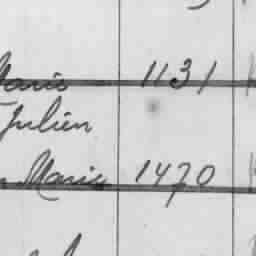 Marie 1131
Julien
Marie 1470